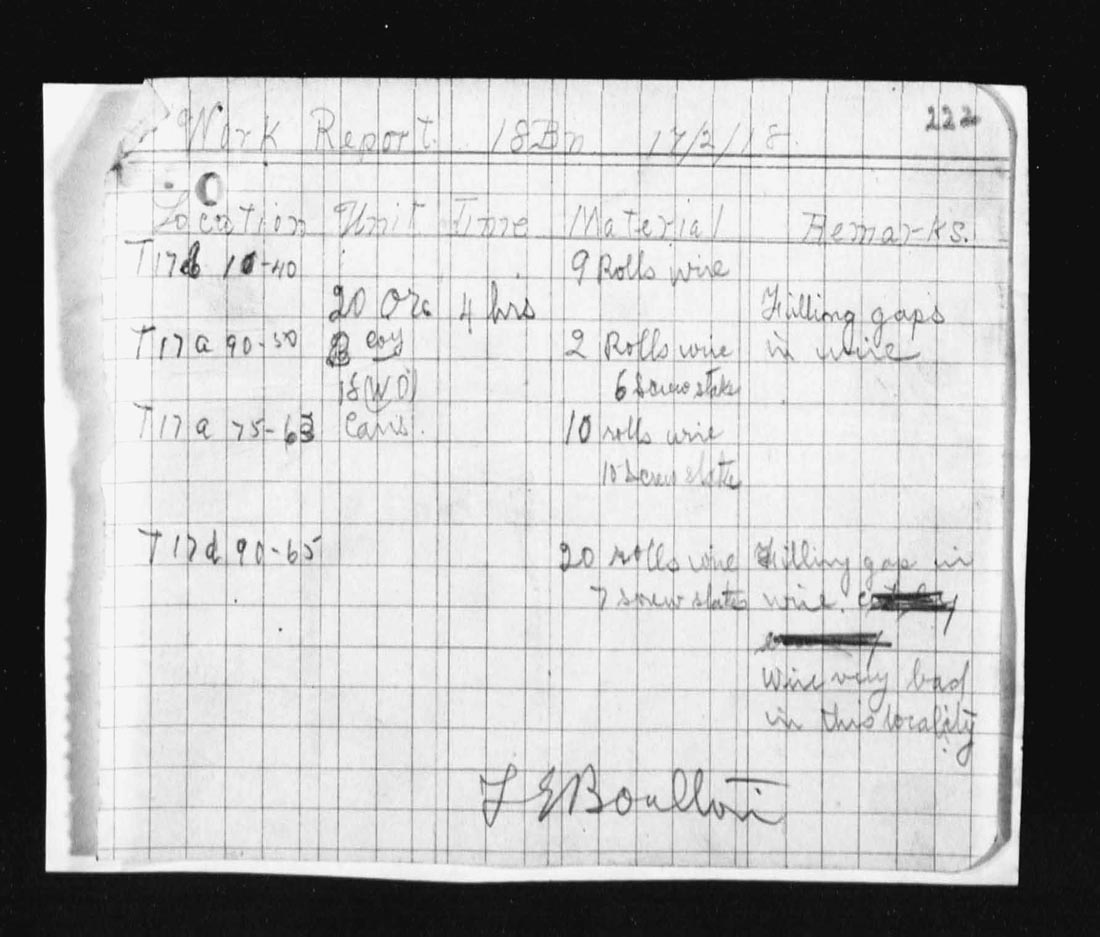 222
Work Report. 18Bn 17/2/18.
Location Unit Time Material Remarks.
T17b 10-40 9 Rolls wire
20 Ors 4 hrs Filling gaps
T17a 90-50 B Coy 2 Rolls wire in wire
18(WO) 6 Screw stakes
T17a 75-63 Cans. 10 rolls wire
10 Screw stakes
T17d 90-65 20 rolls wire Filling gap in
7 screw stakes wire.
Wire very bad
in this locality